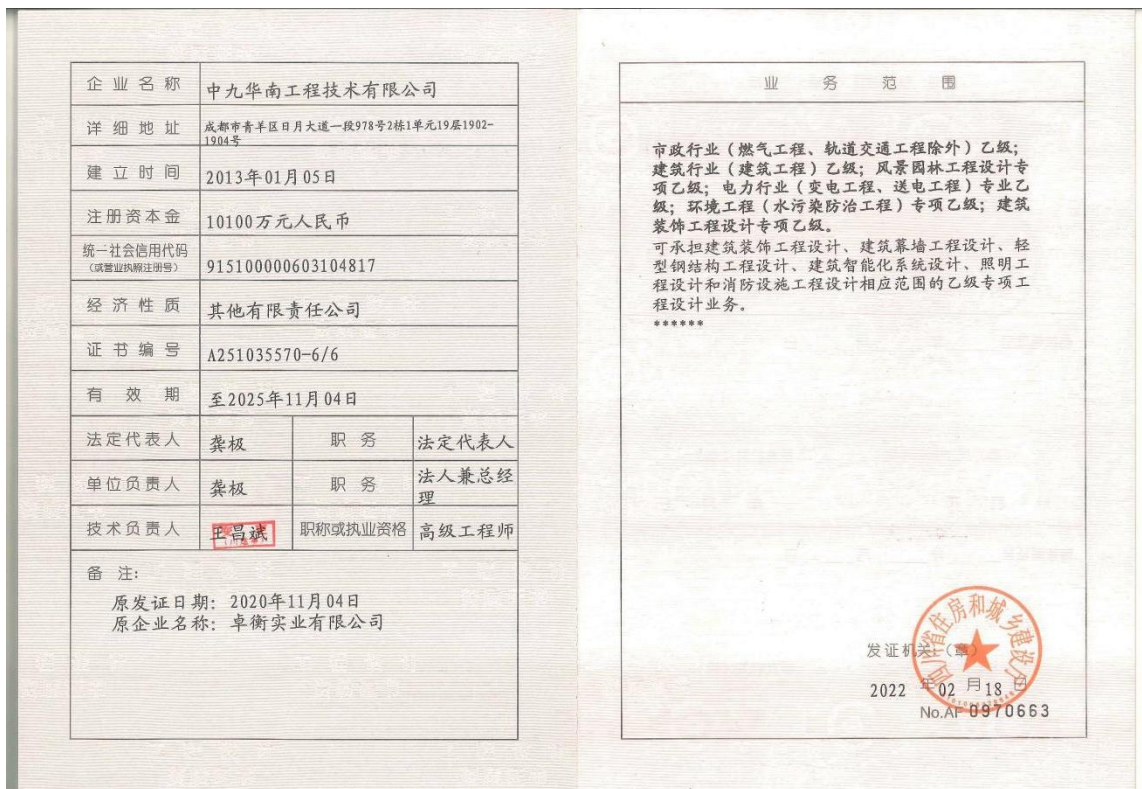 企业名称 中九华南工程技术有限公司
详细地址 成都市青羊区日月大道一段978号2栋1单元19层1902-
1904号
建立时间 2013年01月05日
注册资本金 10100万元人民币
统一社会信用代码
(或营业执照注册号) 915100000603104817
经济性质 其他有限责任公司
证书编号 A251035570-6/6
有效期 至2025年11月04日
法定代表人 龚极 职务 法定代表人
单位负责人 龚极 职务 法人兼总经
理
技术负责人 王昌斌 职称或执业资格 高级工程师
备注:
原发证日期: 2020年11月04日
原企业名称: 卓衡实业有限公司
业务范围
市政行业(燃气工程、轨道交通工程除外)乙级;
建筑行业(建筑工程)乙级;风景园林工程设计专
项乙级;电力行业(变电工程、送电工程)专业乙
级;环境工程(水污染防治工程)专项乙级;建筑
装饰工程设计专项乙级。
可承担建筑装饰工程设计、建筑幕墙工程设计、轻
型钢结构工程设计、建筑智能化系统设计、照明工
程设计和消防设施工程设计相应范围的乙级专项工
程设计业务。
******
四川省住房和城乡建设厅
发证机关:(章)
2022年02月18日
No.AF 0970663